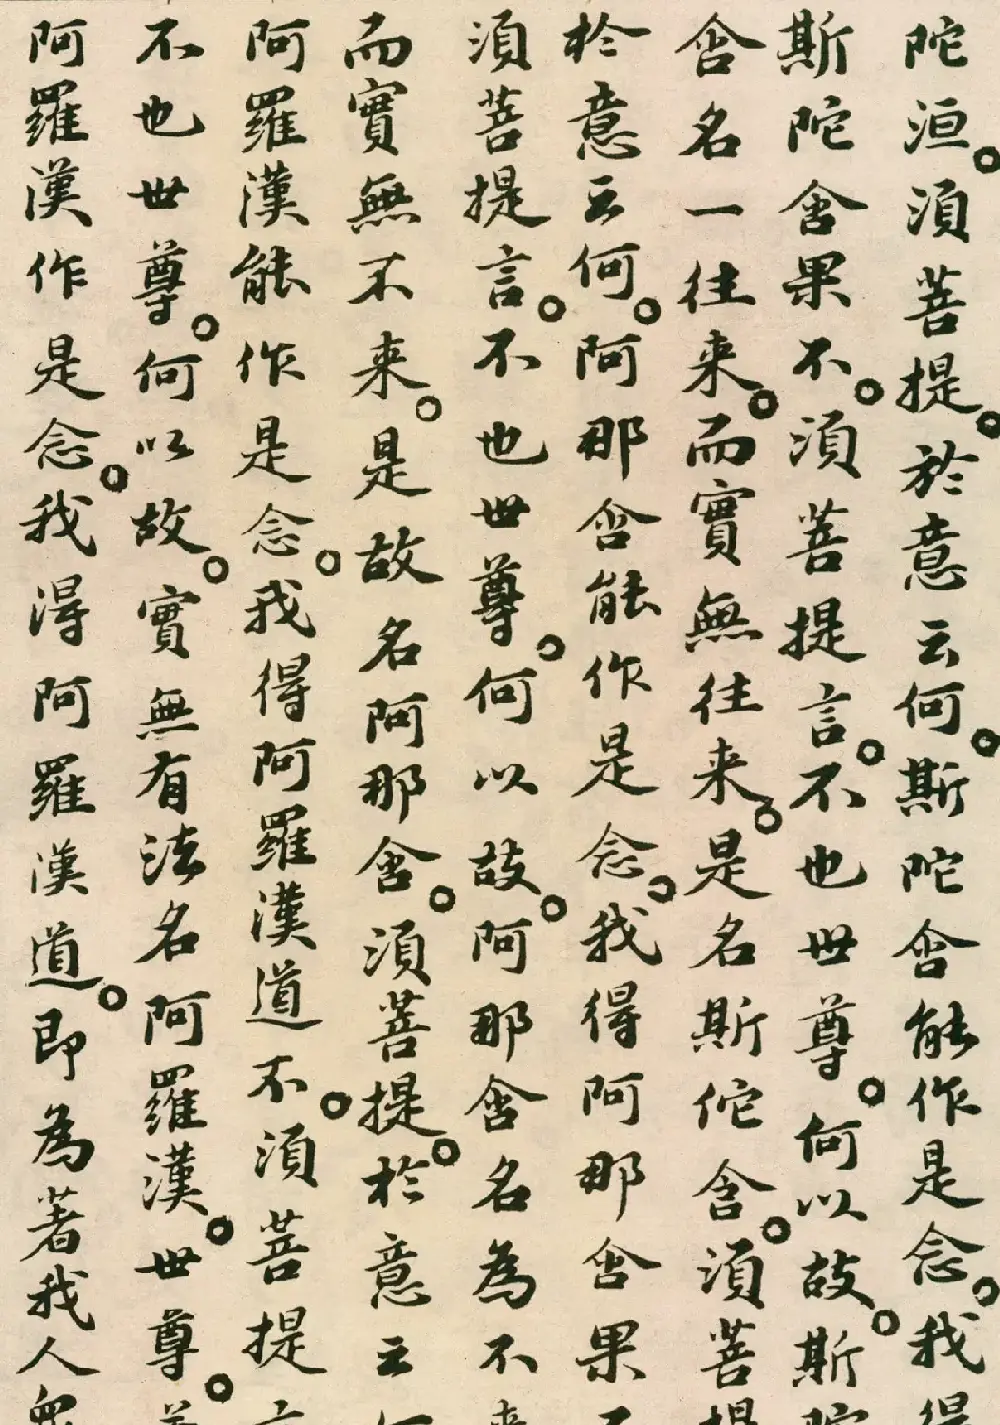 陀洹。須菩提。於意云何。斯陀含能作是念。我得
斯陀含果不。須菩提言。不也世尊。何以故。斯陀
含名一往来。而實無往来。是名斯陀含。須菩提
於意云何。阿那含能作是念。我得阿那含果不
須菩提言。不也世尊。何以故。阿那含名為不来
而實無不来。是故名阿那含。須菩提。於意云何
阿羅漢能作是念。我得阿羅漢道不。須菩提言
不也世尊。何以故。實無有法名阿羅漢。世尊。
阿羅漢作是念。我得阿羅漢道。即為著我人衆